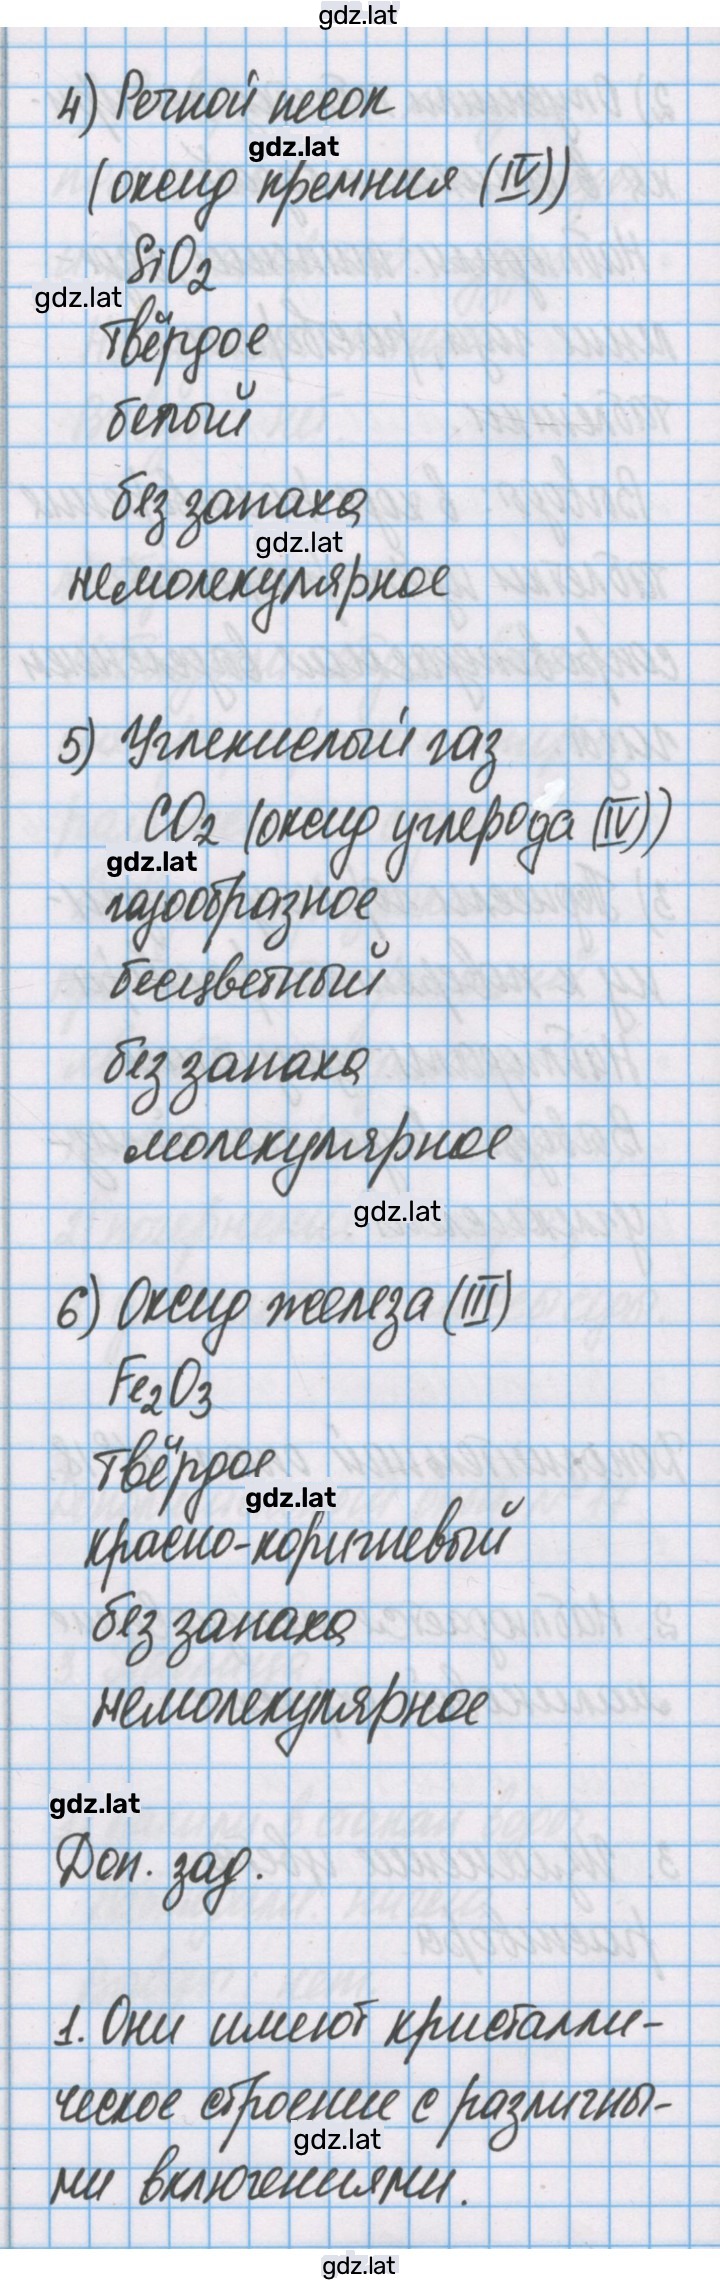 gdz.lat
4) Речной песок
gdz.lat
(оксид кремния (IV))
SiO2
gdz.lat
твёрдое
белый
без запаха
gdz.lat
немолекулярное
5) Углекислый газ
CO2 (оксид углерода (IV))
gdz.lat
газообразное
бесцветный
без запаха
молекулярное
gdz.lat
6) Оксид железа (III)
Fe2O3
твёрдое
gdz.lat
красно-коричневый
без запаха
немолекулярное
gdz.lat
Доп. зад.
1. Они имеют кристалли-
ческое строение с различны-
gdz.lat
ми включениями.
gdz.lat